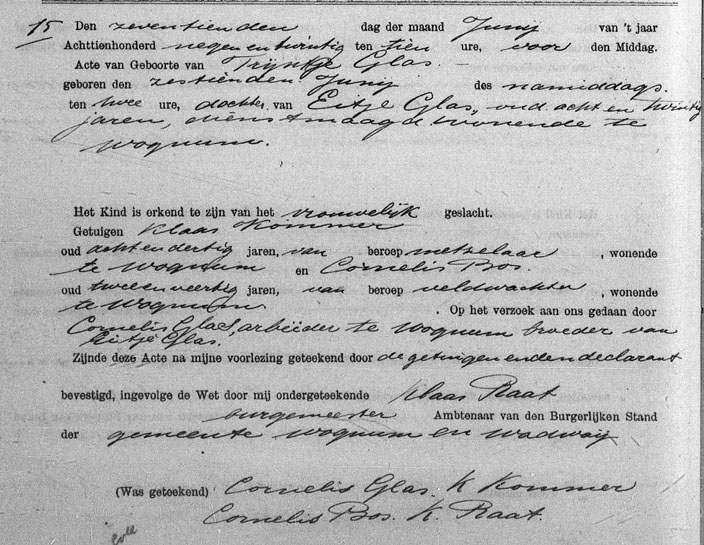 15 Den zeventienden dag der maand Junij van 't jaar
Achttienhonderd negen en twintig ten tien ure, voor den Middag.
Acte van Geboorte van Trijntje Glas.
geboren den zestienden Junij des namiddags.
ten twee ure, dochter van Eitje Glas, oud acht en twintig
jaren, dienstmaagd wonende te
Wognum.
Het Kind is erkend te zijn van het vrouwelijk geslacht.
Getuigen Klaas Kommer
oud acht en dertig jaren, van beroep metselaar, wonende
te Wognum en Cornelis Bos.
oud twee en veertig jaren, van beroep veldwachter, wonende
te Wognum. Op het verzoek aan ons gedaan door
Cornelis Glas, arbeider te Wognum broeder van
Eitje Glas.
Zijnde deze Acte na mijne voorlezing geteekend door de getuigen en den declarant
bevestigd, ingevolge de Wet door mij ondergeteekende Klaas Raat
burgemeester Ambtenaar van den Burgerlijken Stand
der gemeente Wognum en Wadway
(Was geteekend) Cornelis Glas. K Kommer
Cornelis Bos. K. Raat.